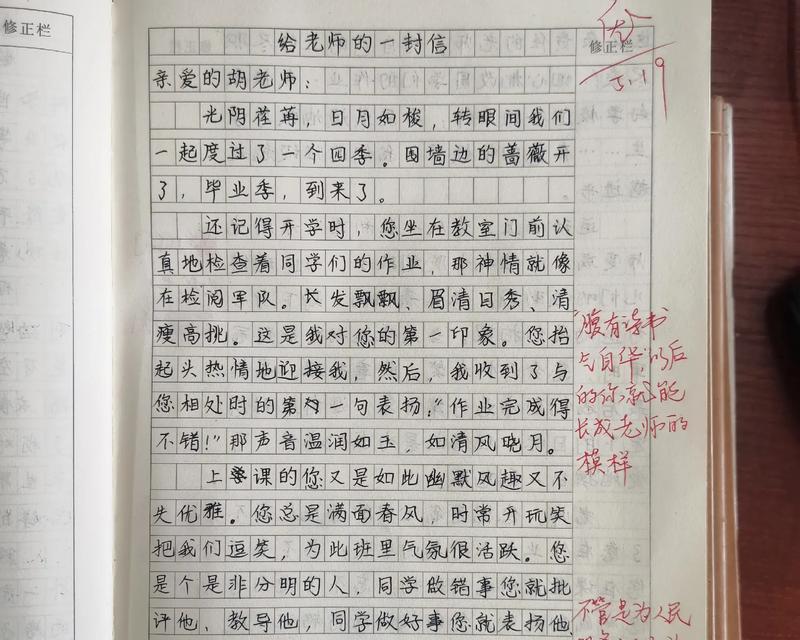 修正栏
给老师的一封信
修正栏
优
5.19
亲爱的胡老师：
光阴荏苒，日月如梭，转眼间我们
一起度过了一个四季。围墙边的蔷薇开
了，毕业季，到来了。
还记得开学时，您坐在教室门前认
真地检查着同学们的作业，那神情就像
在检阅军队。长发飘飘、眉清目秀、清
瘦高挑。这是我对您的第一印象。您抬
起头热情地迎接我，然后，我收到了与
您相处时的第一句表扬："作业完成得
不错！"那声音温润如玉，如清风晓月。
上课的您又是如此幽默风趣又不
失优雅。您总是满面春风，时常开玩笑
把我们逗笑，为此班里气氛很活跃。您
是个是非分明的人，同学做错事您就批
评他、教导他，同学做好事您就表扬他
"腹有诗书
气自华"，以后
的你就能
长成老师的
模样
不管是为人民